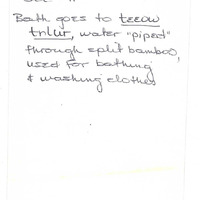 Bath goes to teeow
tnlur, water "piped"
through split bamboo,
used for bathing
& washing clothes